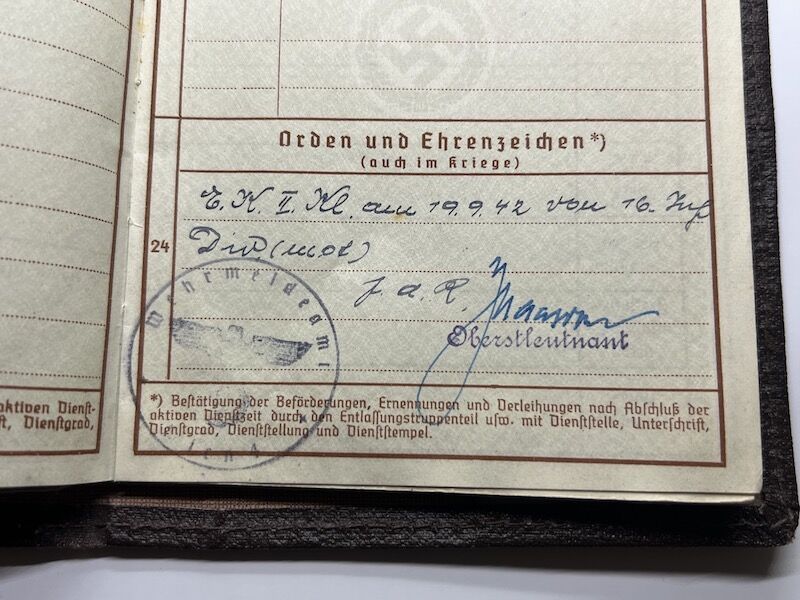 Orden und Ehrenzeichen*)
(auch im Kriege)
E.K. II. Kl. am 19.9.42 von 16. Inf.
24
Div (mot)
J. a. R.
Oberstleutnant
Wehrmeldeamt
*) Bestätigung der Beförderungen, Ernennungen und Verleihungen nach Abschluß der
aktiven Dienstzeit durch den Entlassungstruppenteil usw. mit Dienststelle, Unterschrift,
Dienstgrad, Dienststellung und Dienststempel.
aktiven Dienst-
Dienstgrad,